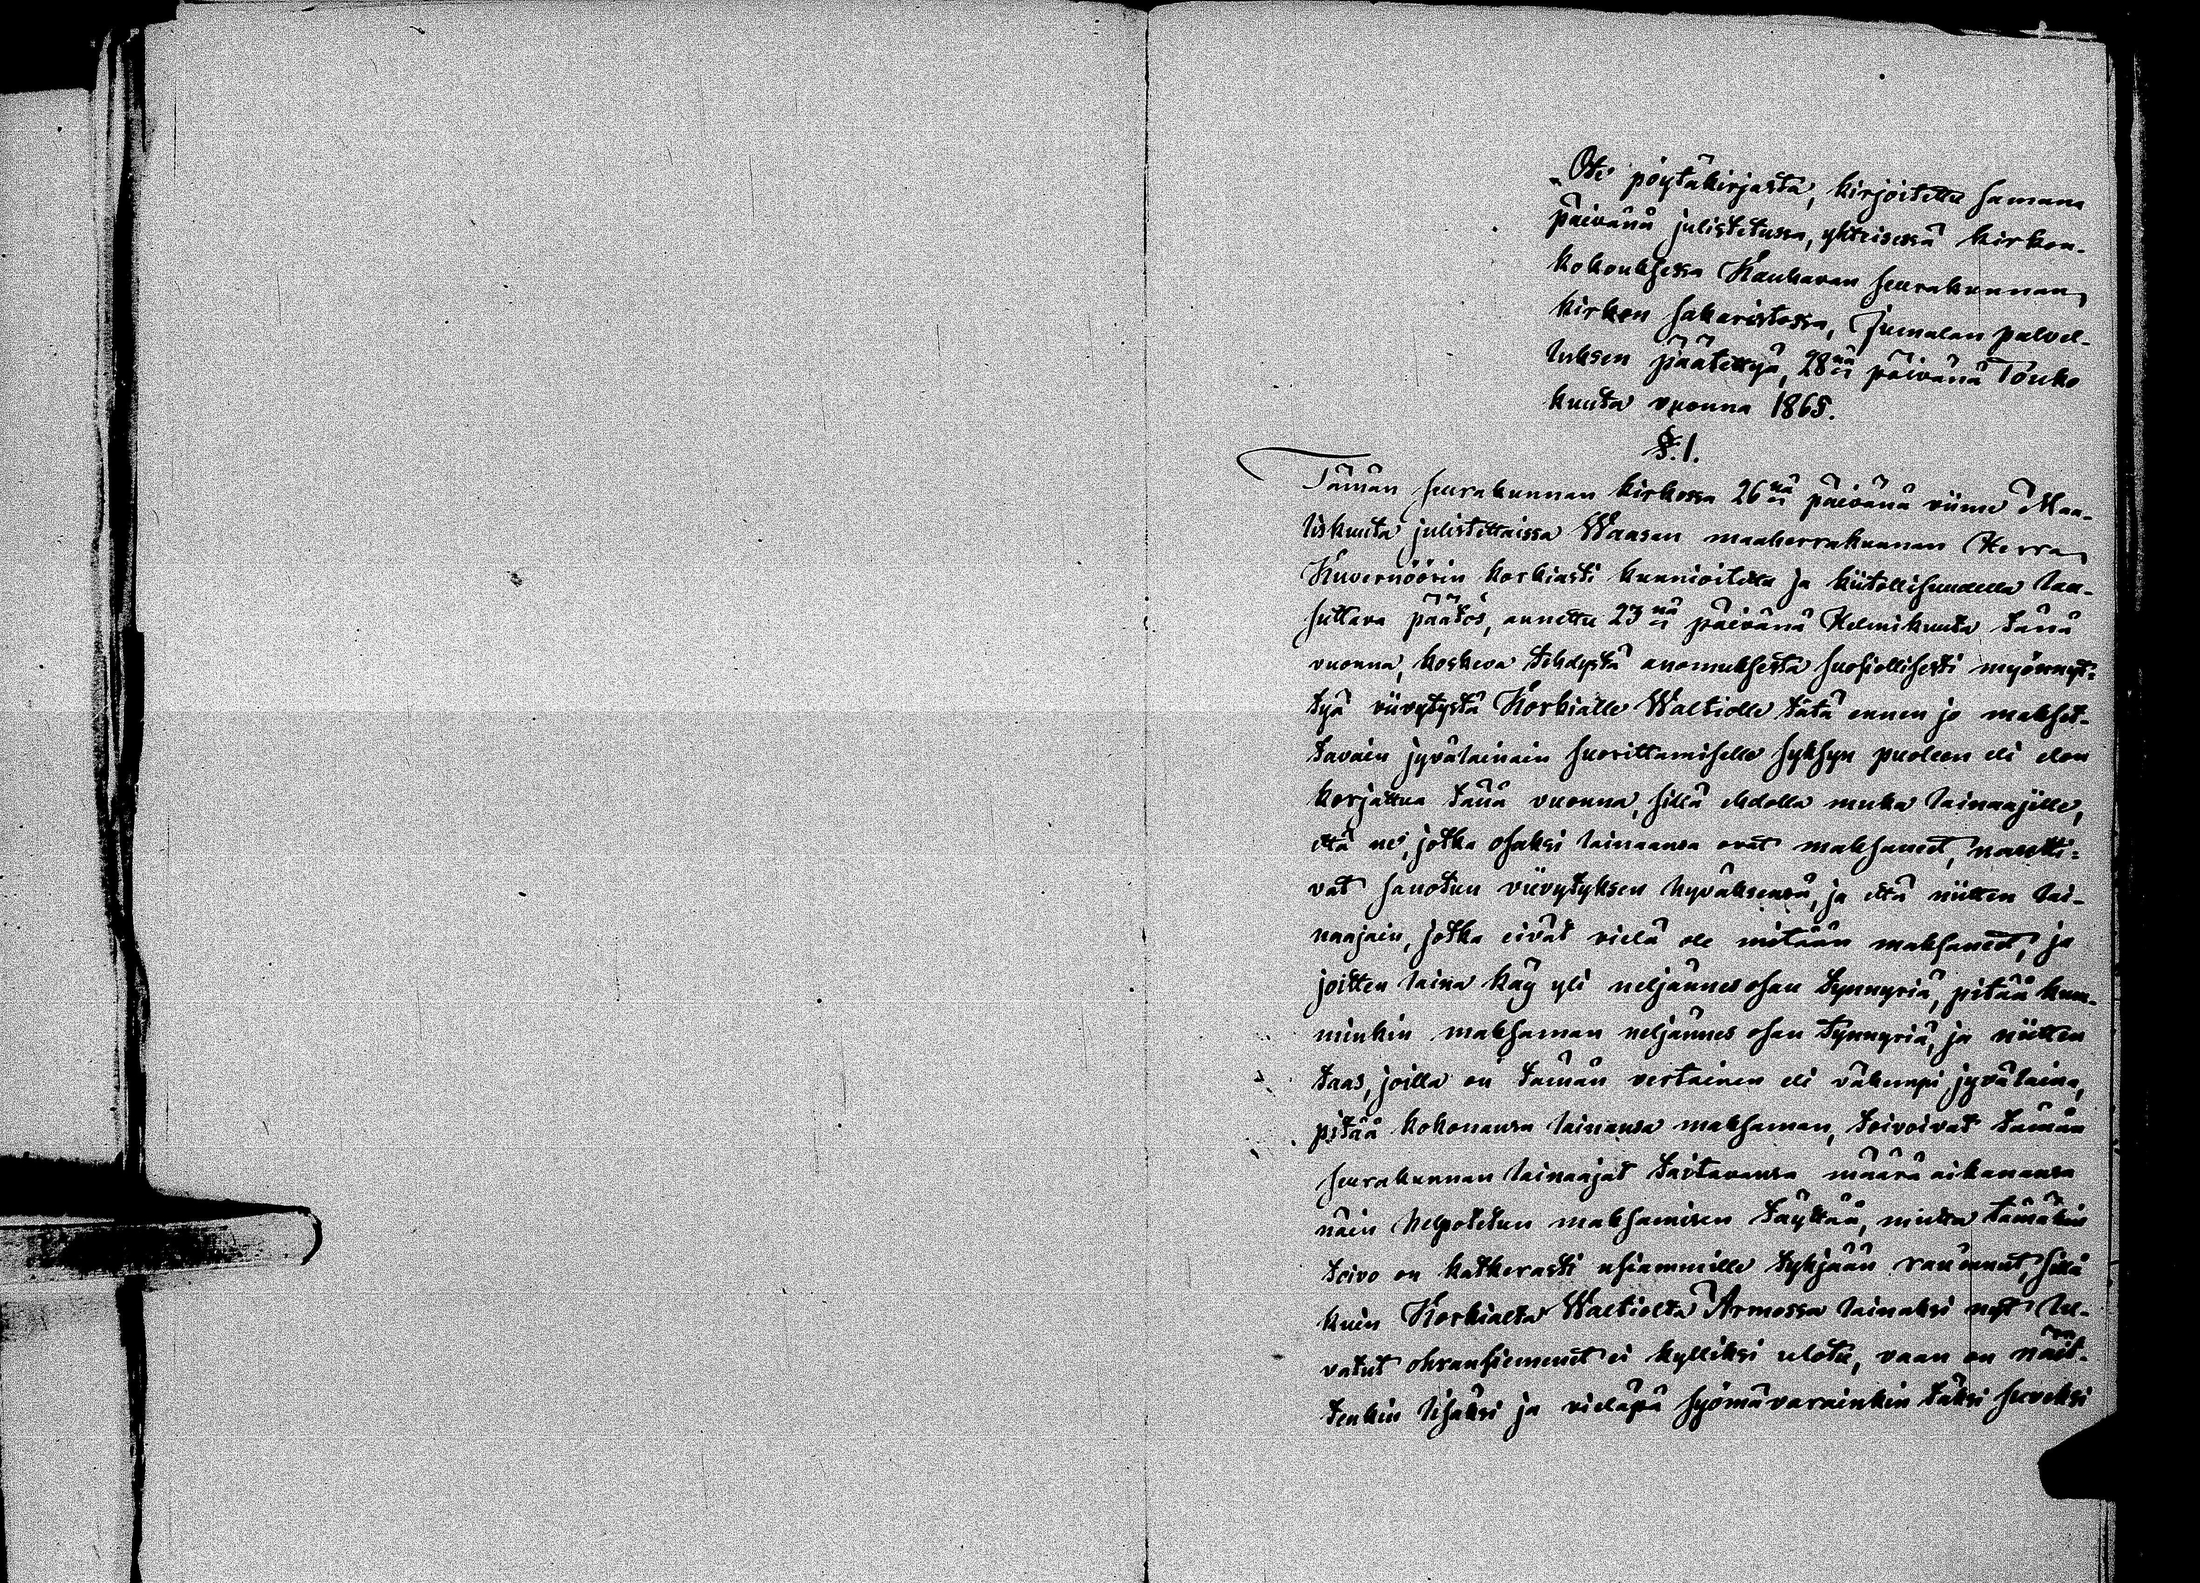 Ote pöytäkirjasta, kirjoitettu samana
päivänä julistetussa, yhteisessä kirkon-
kokouksessa Kauhavan seurakunnan
kirkon sakaristossa, Jumalan palvel-
luksen päätettyä, 28nä päivänä Touko
kuuta vuonna 1865.
§. 1.
Tämän seurakunnan kirkossa 26nä päivänä viime Maa-
liskuuta julistettaissa Waasan maaherrakunnan Herra
Kuvernöörin korkiasti kunnioitettu ja kiitollisuudella lau-
suttava päätös, annettu 23nä päivänä Helmikuuta tänä
vuonna, koskeva tehdystä anomuksesta suosiollisesti myönnyt-
tyä viivytystä Korkialle Waltiolle tätä ennen jo makset-
tavain jyvälainain suorittamiselle syksyn puoleen eli elon
korjattua tänä vuonna, sillä ehdolla muka lainaajille,
että ne, jotka osaksi lainaansa ovat maksaneet, nautti-
vat sanotun viivytyksen hyväksensä, ja että niitten lai-
naajain, jotka eivät vielä ole mitään maksaneet, ja
joitten laina käy yli neljännes osan tynnyriä, pitää kum-
minkin maksaman neljännes osan tynnyriä, ja niitten
taas, joilla on tämän vertainen eli vähempi jyvälaina,
pitää kokonansa lainansa maksaman, toivoivat tämän
seurakunnan lainaajat taitavansa määrä aikanansa
näin helpotetun maksamisen täyttää, mutta tämäkin
toivo on katkerasti usiammille tyhjään rauennut, sillä
kuin Korkialta Waltiolta Armossa lainaksi nyt lu-
vatut ohransiemenet ei kylliksi ulotu, vaan on näit-
tenkin lisäksi ja vieläpä syömävarainkin täksi suveksi